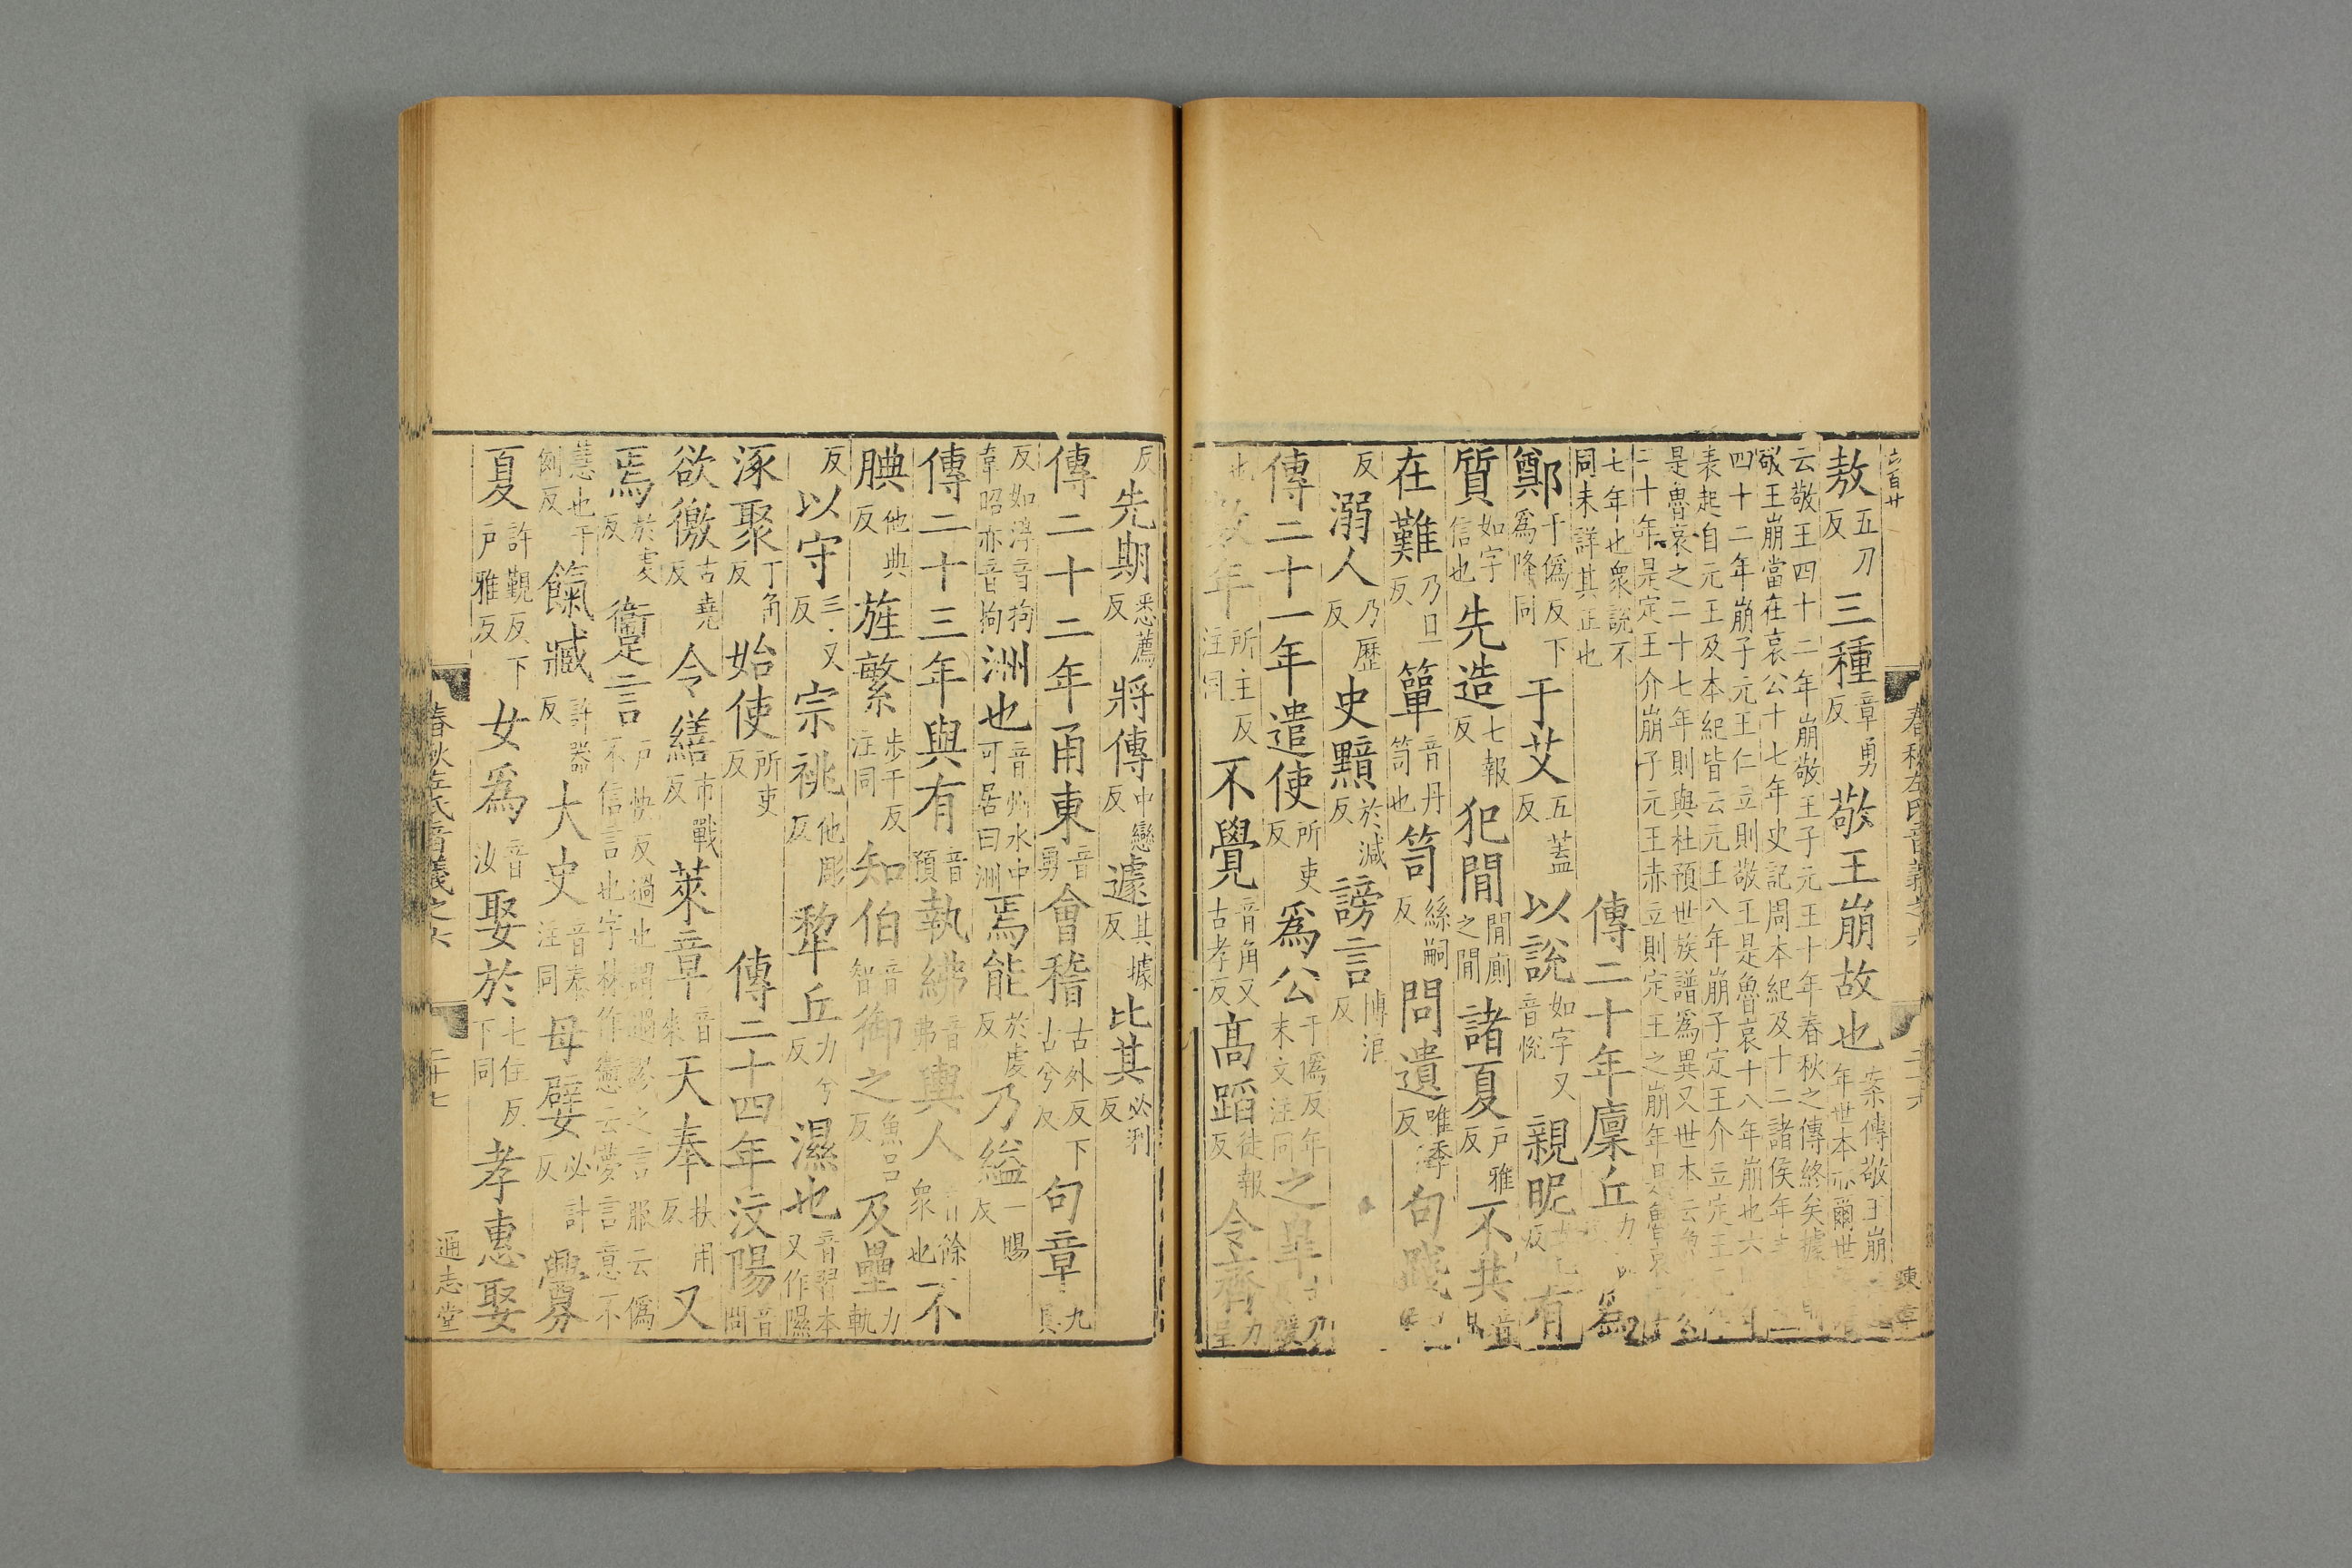 六百廿
春秋左氏音義之六
二十六
敖五刀反三種章勇反敬王崩故也案傳敬王崩年世本亦爾世
云敬王四十二年崩敬王子元王十年春秋之傳終矣據
敬王崩當在哀公十七年史記周本紀及十二諸侯年
四十二年崩子元王仁立則敬王是魯哀十八年崩也六
表起自元王及本紀皆云元王八年崩子定王介立定王
是魯哀之二十七年則與杜預世族譜爲異又世本云
二十年是定王介崩子元王赤立則定王之崩年是魯哀
七年也衆說不同未詳其正也傳二十年廩丘力
鄭于僞反下爲降同于艾五蓋反以說如字又音悅親昵有
質如字信也先造七報反犯閒閒廁之閒諸夏戶雅反不共音
在難乃旦反簞音丹笥也笥絲嗣反問遺唯季反句踐
反溺人乃歷反史黯於減反謗言博浪反
傳二十一年遣使所吏反爲公于僞反年末文注同之皐
也數年所主反注同不覺音角又古孝反高蹈徒報反令齊力呈
反先期悉薦反將傳中戀反遽其據反比其必利反
傳二十二年甬東音勇會稽古外反下古兮反句章九具
反如淳音拘韋昭亦音拘洲也音州水中可居曰洲焉能於虔反乃縊一賜反
傳二十三年與有音預執紼音弗輿人音餘衆也不
腆他典反旌繁步干反注同知伯音智御之魚呂反及壘力軌
反以守手又反宗祧他彫反犂丘力兮反濕也音習本又作隰
涿聚丁角反始使所吏反傳二十四年汶陽音問
欲徼古堯反令繕市戰反萊章音來天奉扶用反又
焉於虔反躗言戶快反過也謂過謬之言服云僞不信言也字林作㦣云夢言意不
慧也于例反餼臧許器反大史音泰注同母嬖必計反釁
夏許覲反下戶雅反女爲音汝娶於七住反下同孝惠娶
春秋左氏音義之六
二十七
通志堂